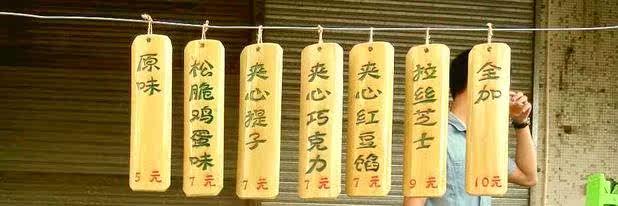 原味
5 元
松脆鸡蛋味
7 元
夹心提子
7 元
夹心巧克力
7 元
夹心红豆馅
7 元
拉丝芝士
9 元
全加
10元